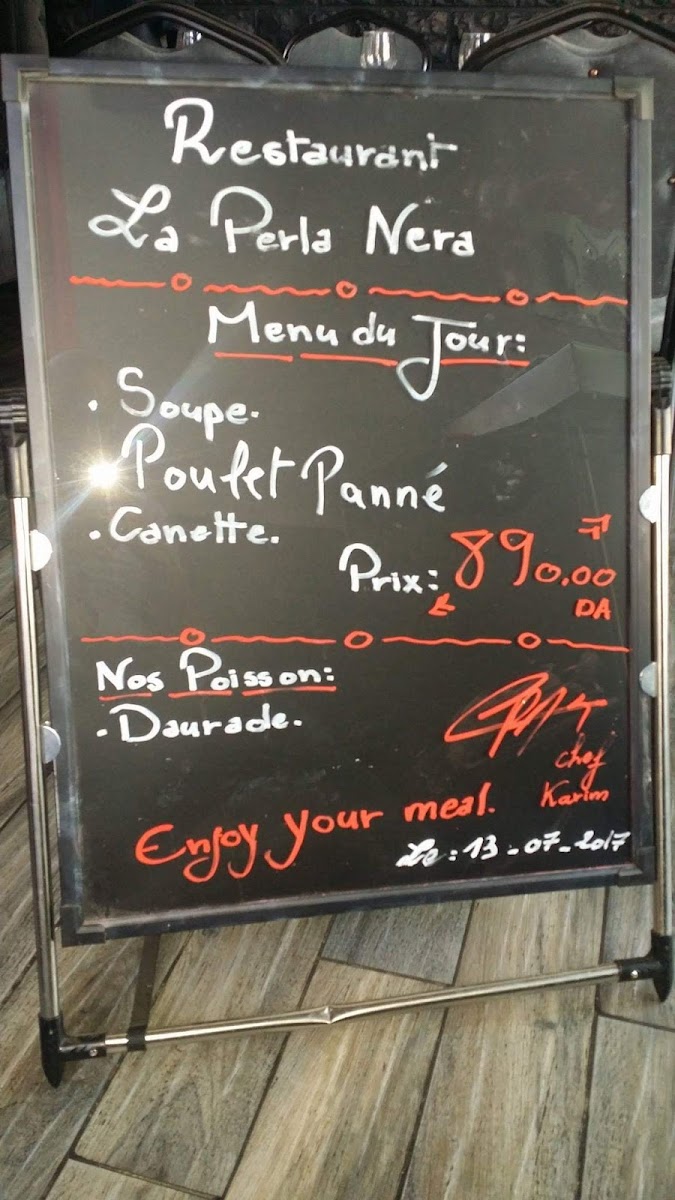 Restaurant
La Perla Nera
Menu du Jour:
. Soupe.
Poulet Panné
. Canette.
Prix: 890.00
DA
Nos Poisson:
. Daurade.
chef
Karim
Enjoy your meal.
Le: 13-07-2017